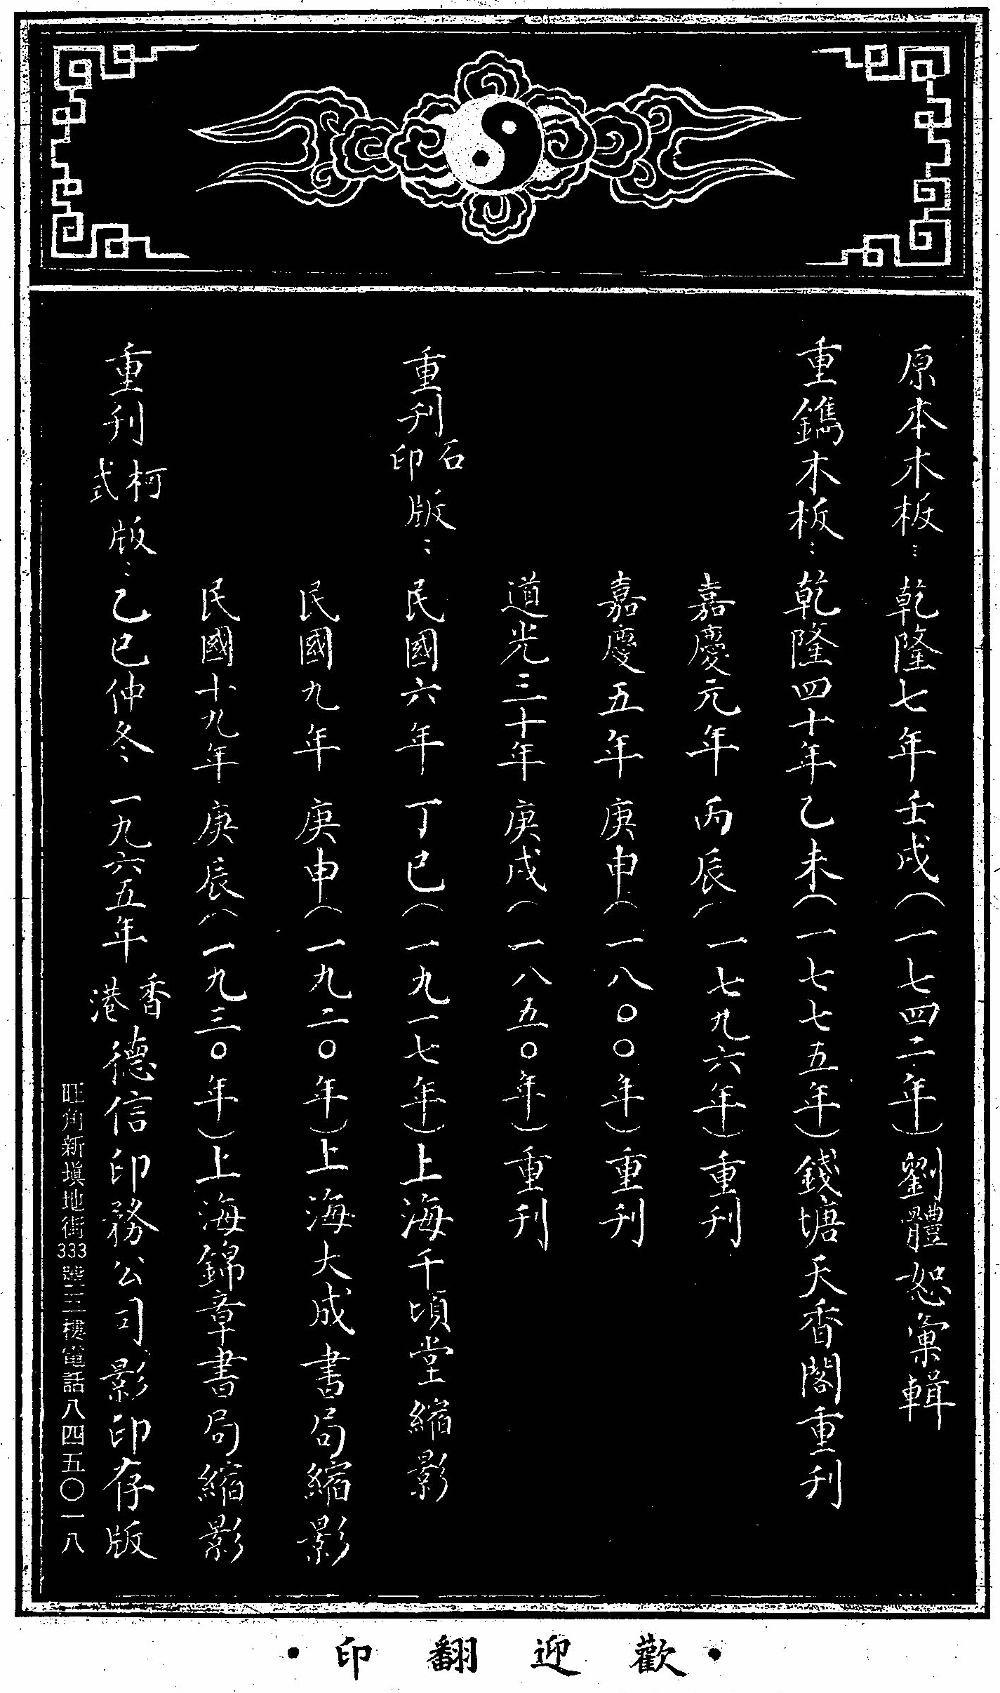 原本木板：乾隆七年壬戌（一七四二年）劉體恕彙輯
重鐫木板：乾隆四十年乙未（一七七五年）錢塘天香閣重刊
嘉慶元年丙辰（一七九六年）重刊
嘉慶五年庚申（一八〇〇年）重刊
道光三十年庚戌（一八五〇年）重刊
重刊石印版：民國六年丁巳（一九一七年）上海千頃堂縮影
民國九年庚申（一九二〇年）上海大成書局縮影
民國十九年庚辰（一九三〇年）上海錦章書局縮影
重刊柯式版：乙巳仲冬一九六五年香港德信印務公司影印存版
旺角新填地街333號三樓電話八四五〇一八
·歡迎翻印·